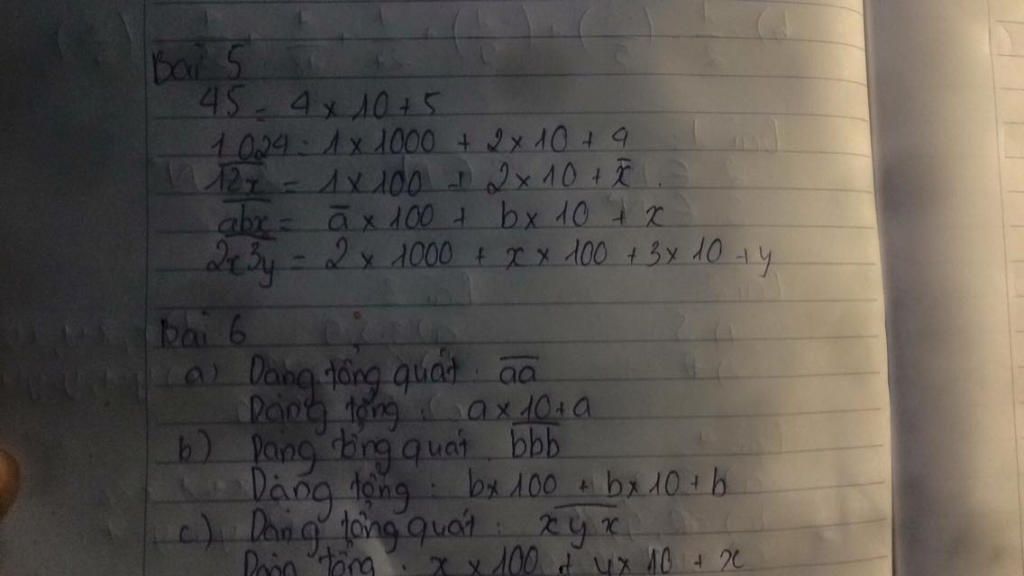 Bài 5
45 = 4 x 10 + 5
1024 = 1 x 1000 + 2 x 10 + 4
1̅2̅x̅ = 1 x 100 + 2 x 10 + x̅.
a̅b̅x̅ = a̅ x 100 + b x 10 + x
2̅x̅3̅y̅ = 2 x 1000 + x x 100 + 3 x 10 + y
Bài 6
a) Dạng tổng quát: a̅a̅
Dạng tổng: a x 10 + a
b) Dạng tổng quát: b̅b̅b̅
Dạng tổng: b x 100 + b x 10 + b
c) Dạng tổng quát: x̅y̅x̅
Dạng tổng: x x 100 + y x 10 + x